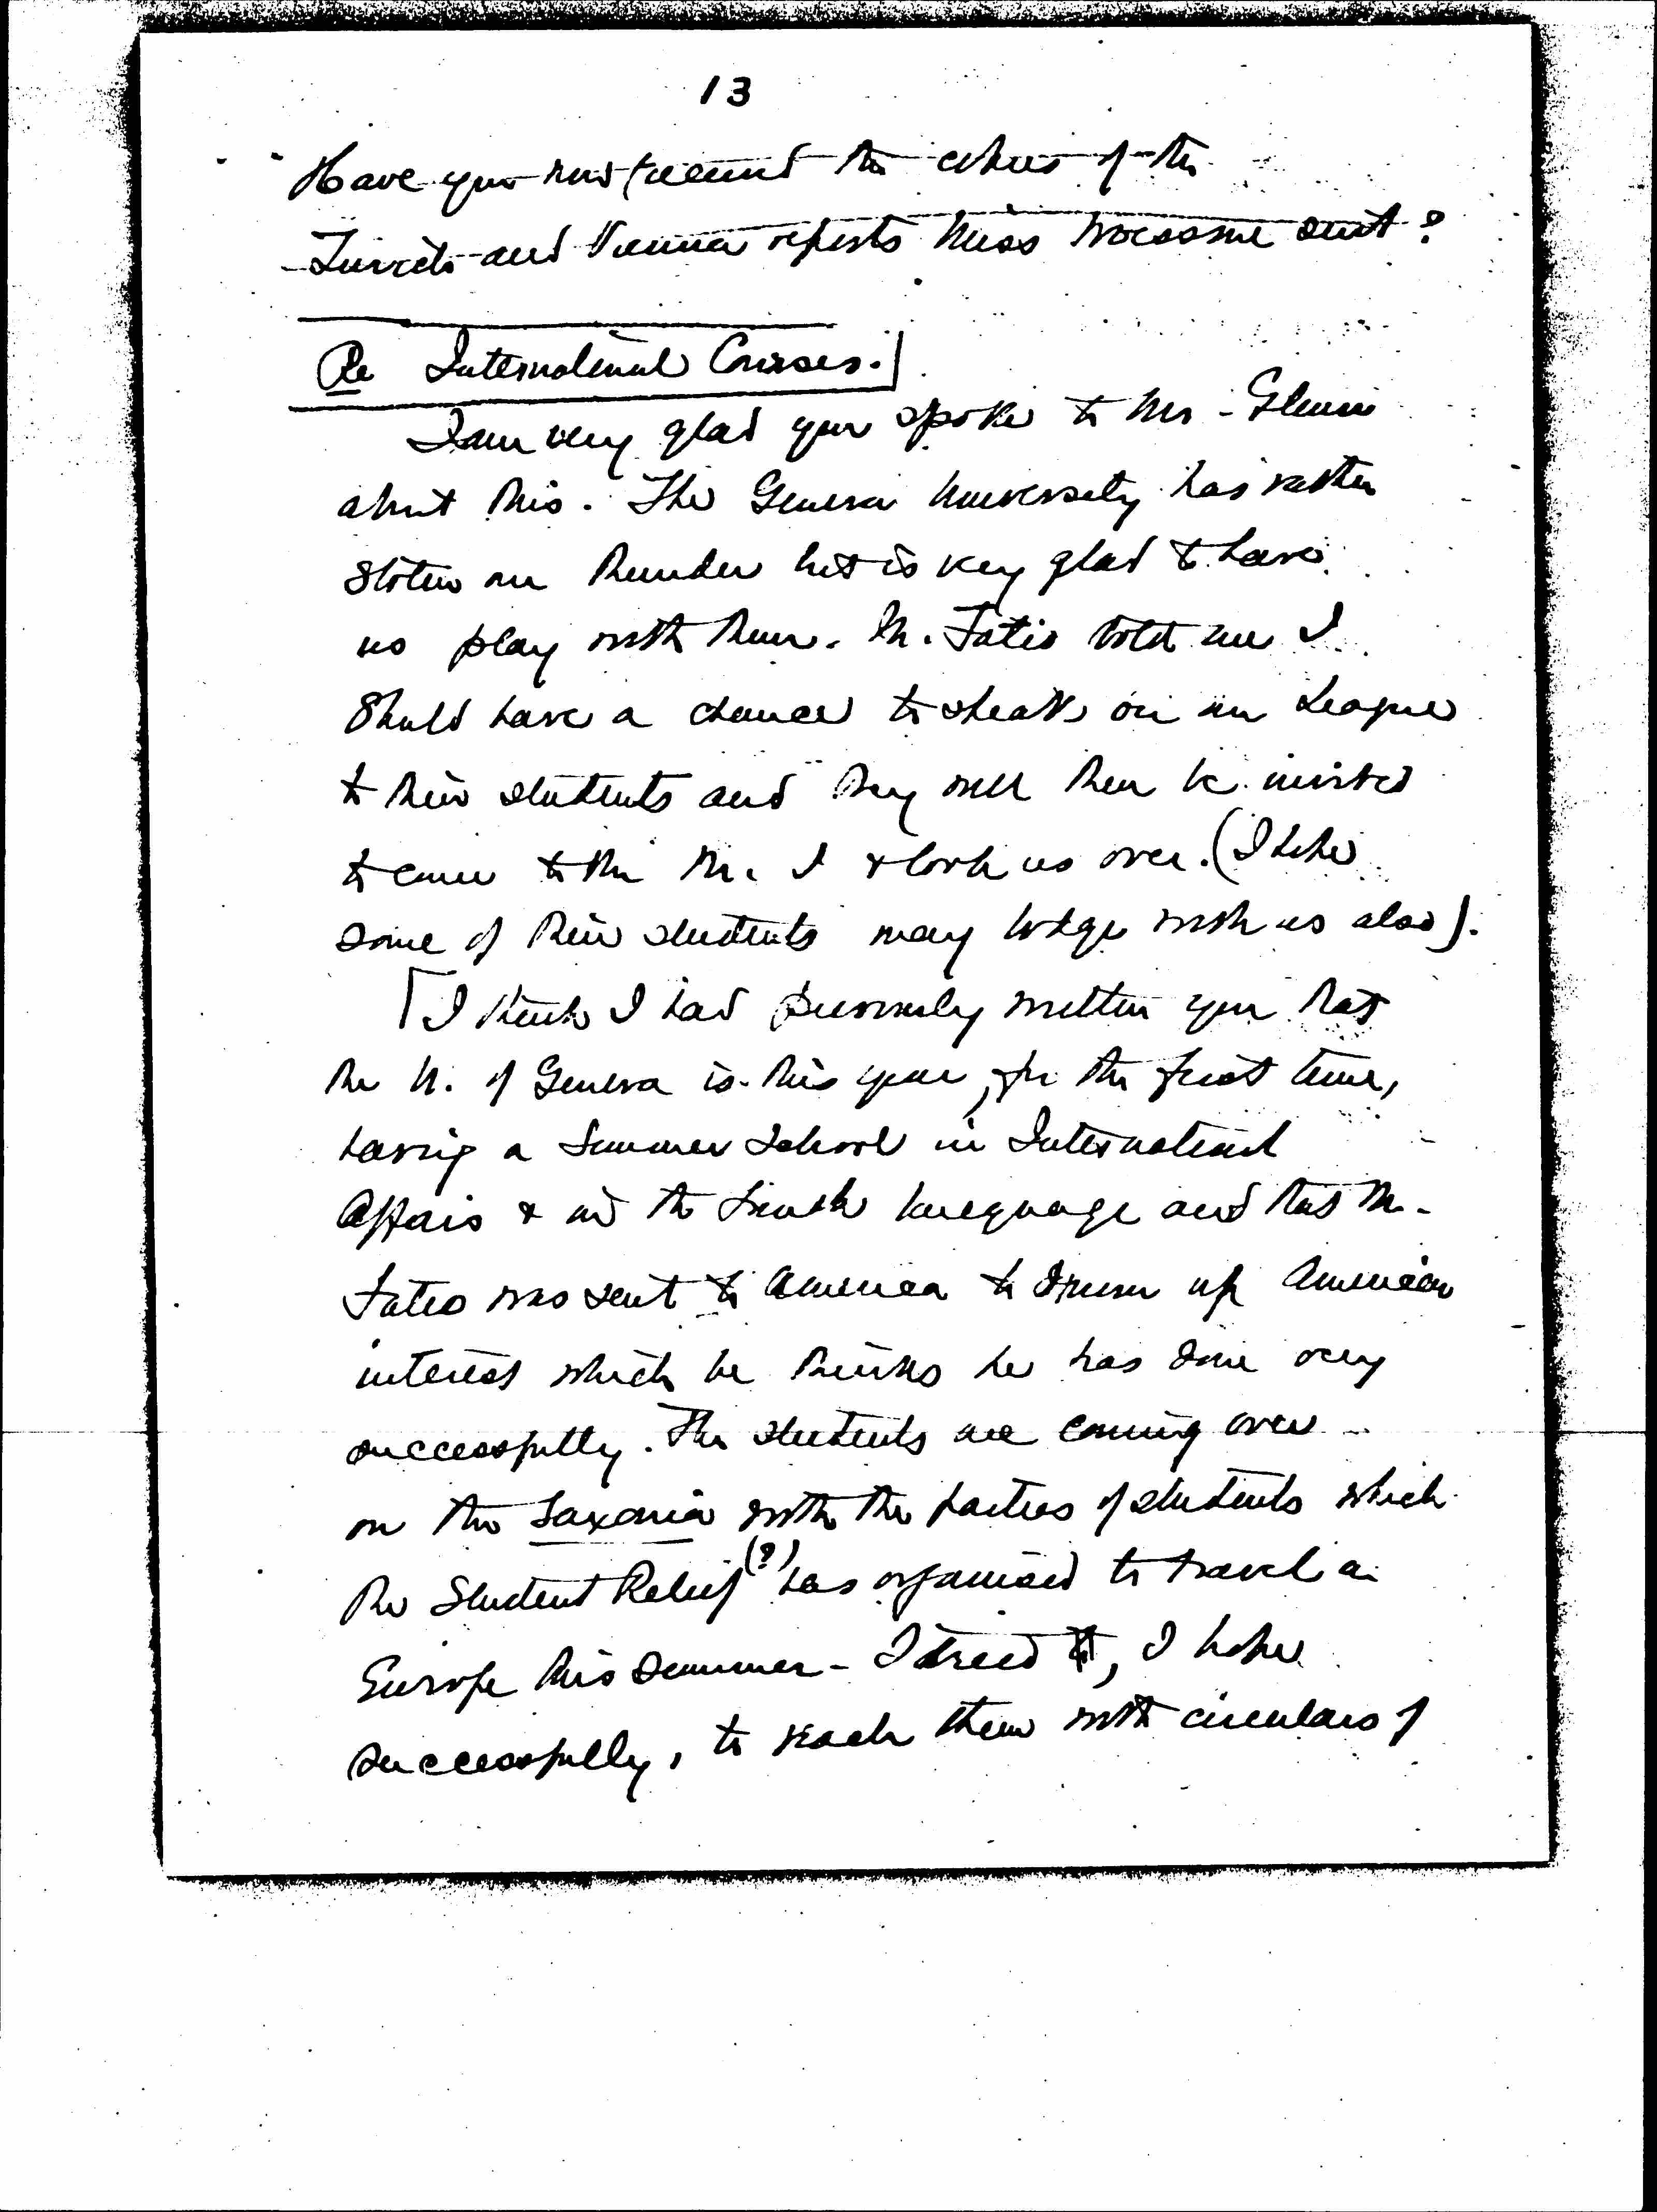 13
Have you now received the copies of the
Zurich and Vienna reports Miss sent?
Re International Courses.
I am very glad you spoke to Mr.
about this. The Geneva University has rather
stolen our thunder but is very glad to have
us play with them. M. Fatio told me I
should have a chance to speak on our League
to their students and they will then be invited
to come to the M. I & look us over. (I hope
some of their students may lodge with us also).
[I think I had previously written you that
the U. of Geneva is this year, for the first time,
having a Summer School in International
Affairs & in the French language and that M.
Fatio was sent to America to drum up American
interest which he thinks he has done very
successfully. The students are coming over
on the Saxonia with the parties of students which
the Student Relief (?) has organised to travel in
Europe this summer - I tried, I hope
successfully, to reach them with circulars of